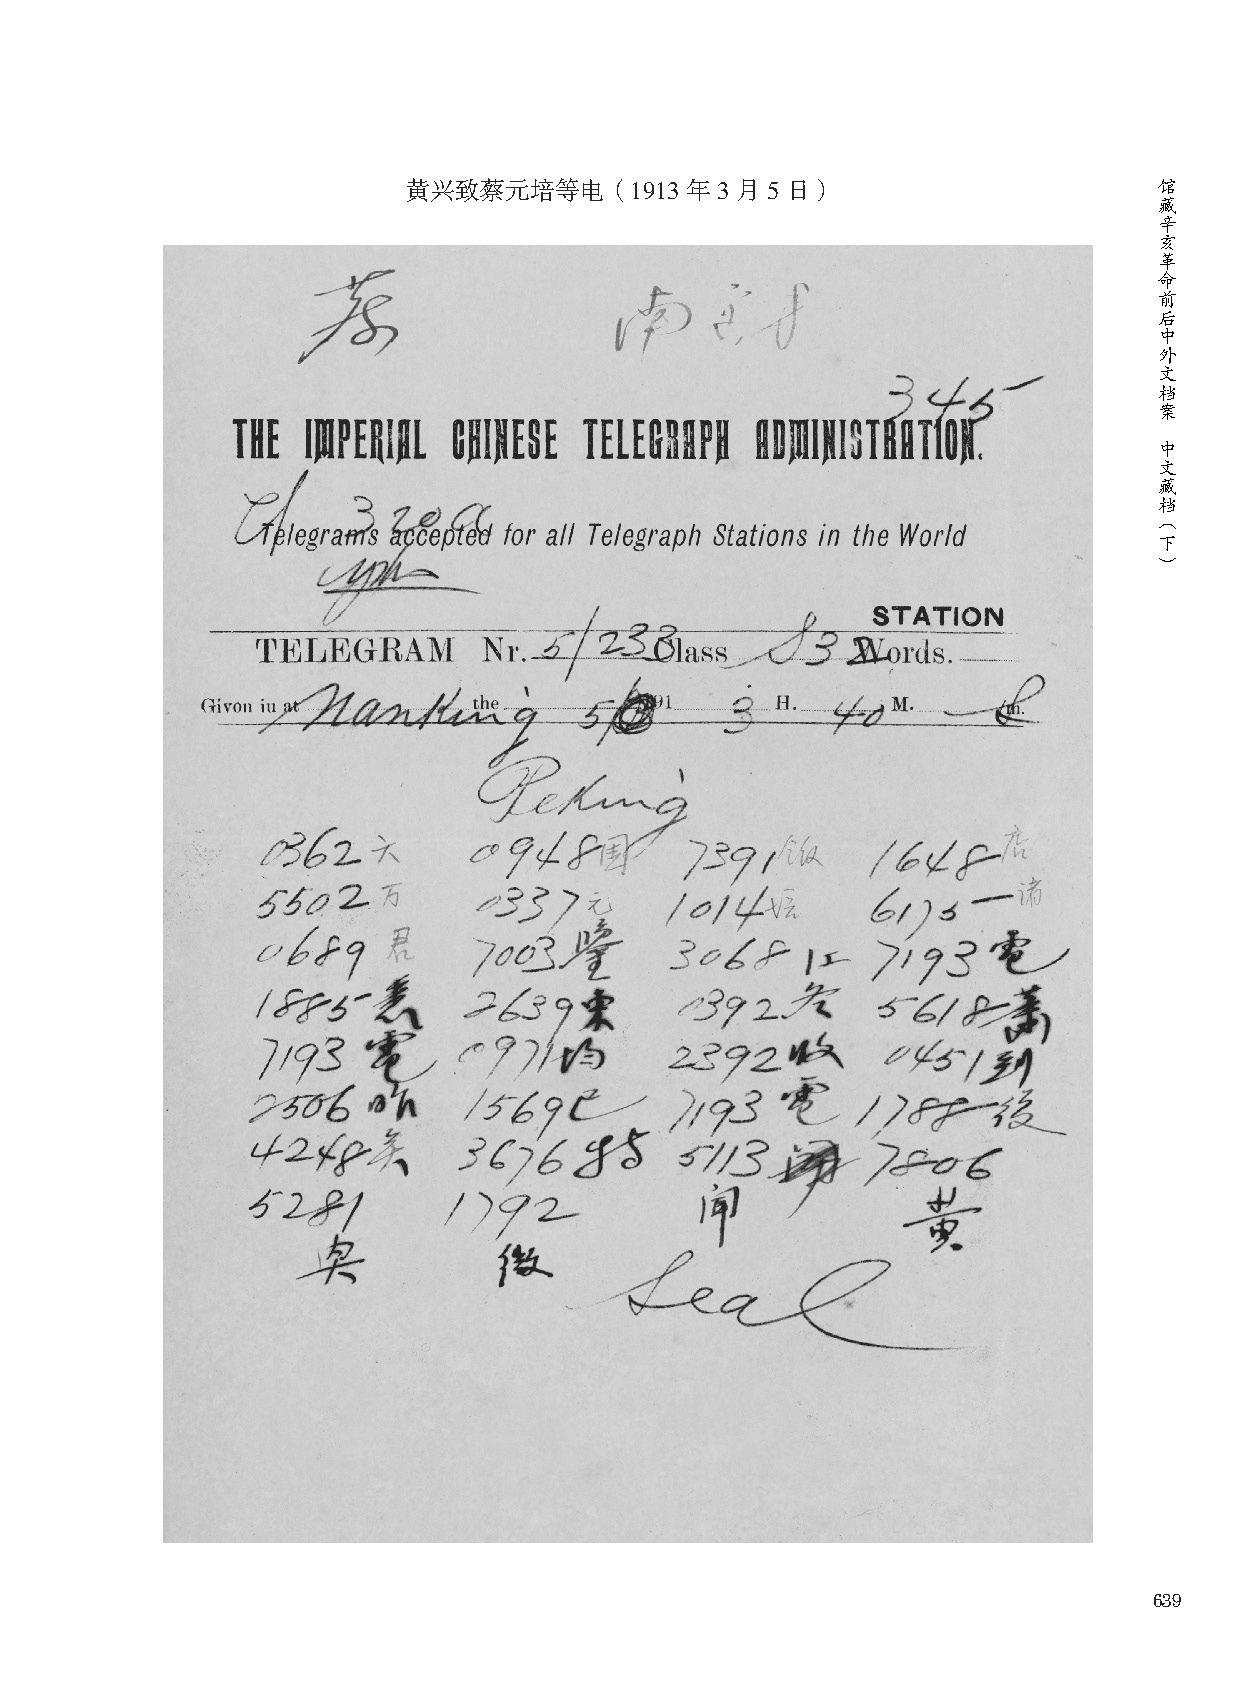 黄兴致蔡元培等电（1913 年 3 月 5 日）
馆藏辛亥革命前后中外文档案 中文藏档（下）
蔡 南京
345
THE IMPERIAL CHINESE TELEGRAPH ADMINISTRATION.
Telegrams accepted for all Telegraph Stations in the World
STATION
TELEGRAM Nr. 5/233 Class S 32 Words.
Givon iu at Nanking the 5/3 191 3 H. 40 M. m.
Peking
0362 六 0948 国 7391 飯 1648 店
5502 万 0337 元 1014 培 6175 诸
0689 君 7003 鑒 3068 江 7193 電
1885 悉 2639 東 0392 冬 5618 蕭
7193 電 0971 均 2392 收 0451 到
2506 昨 1569 已 7193 電 1788 後
4248 矣 3676 特 5113 聞 7806
5281 1792 闻 黄
興 微
Seal
639